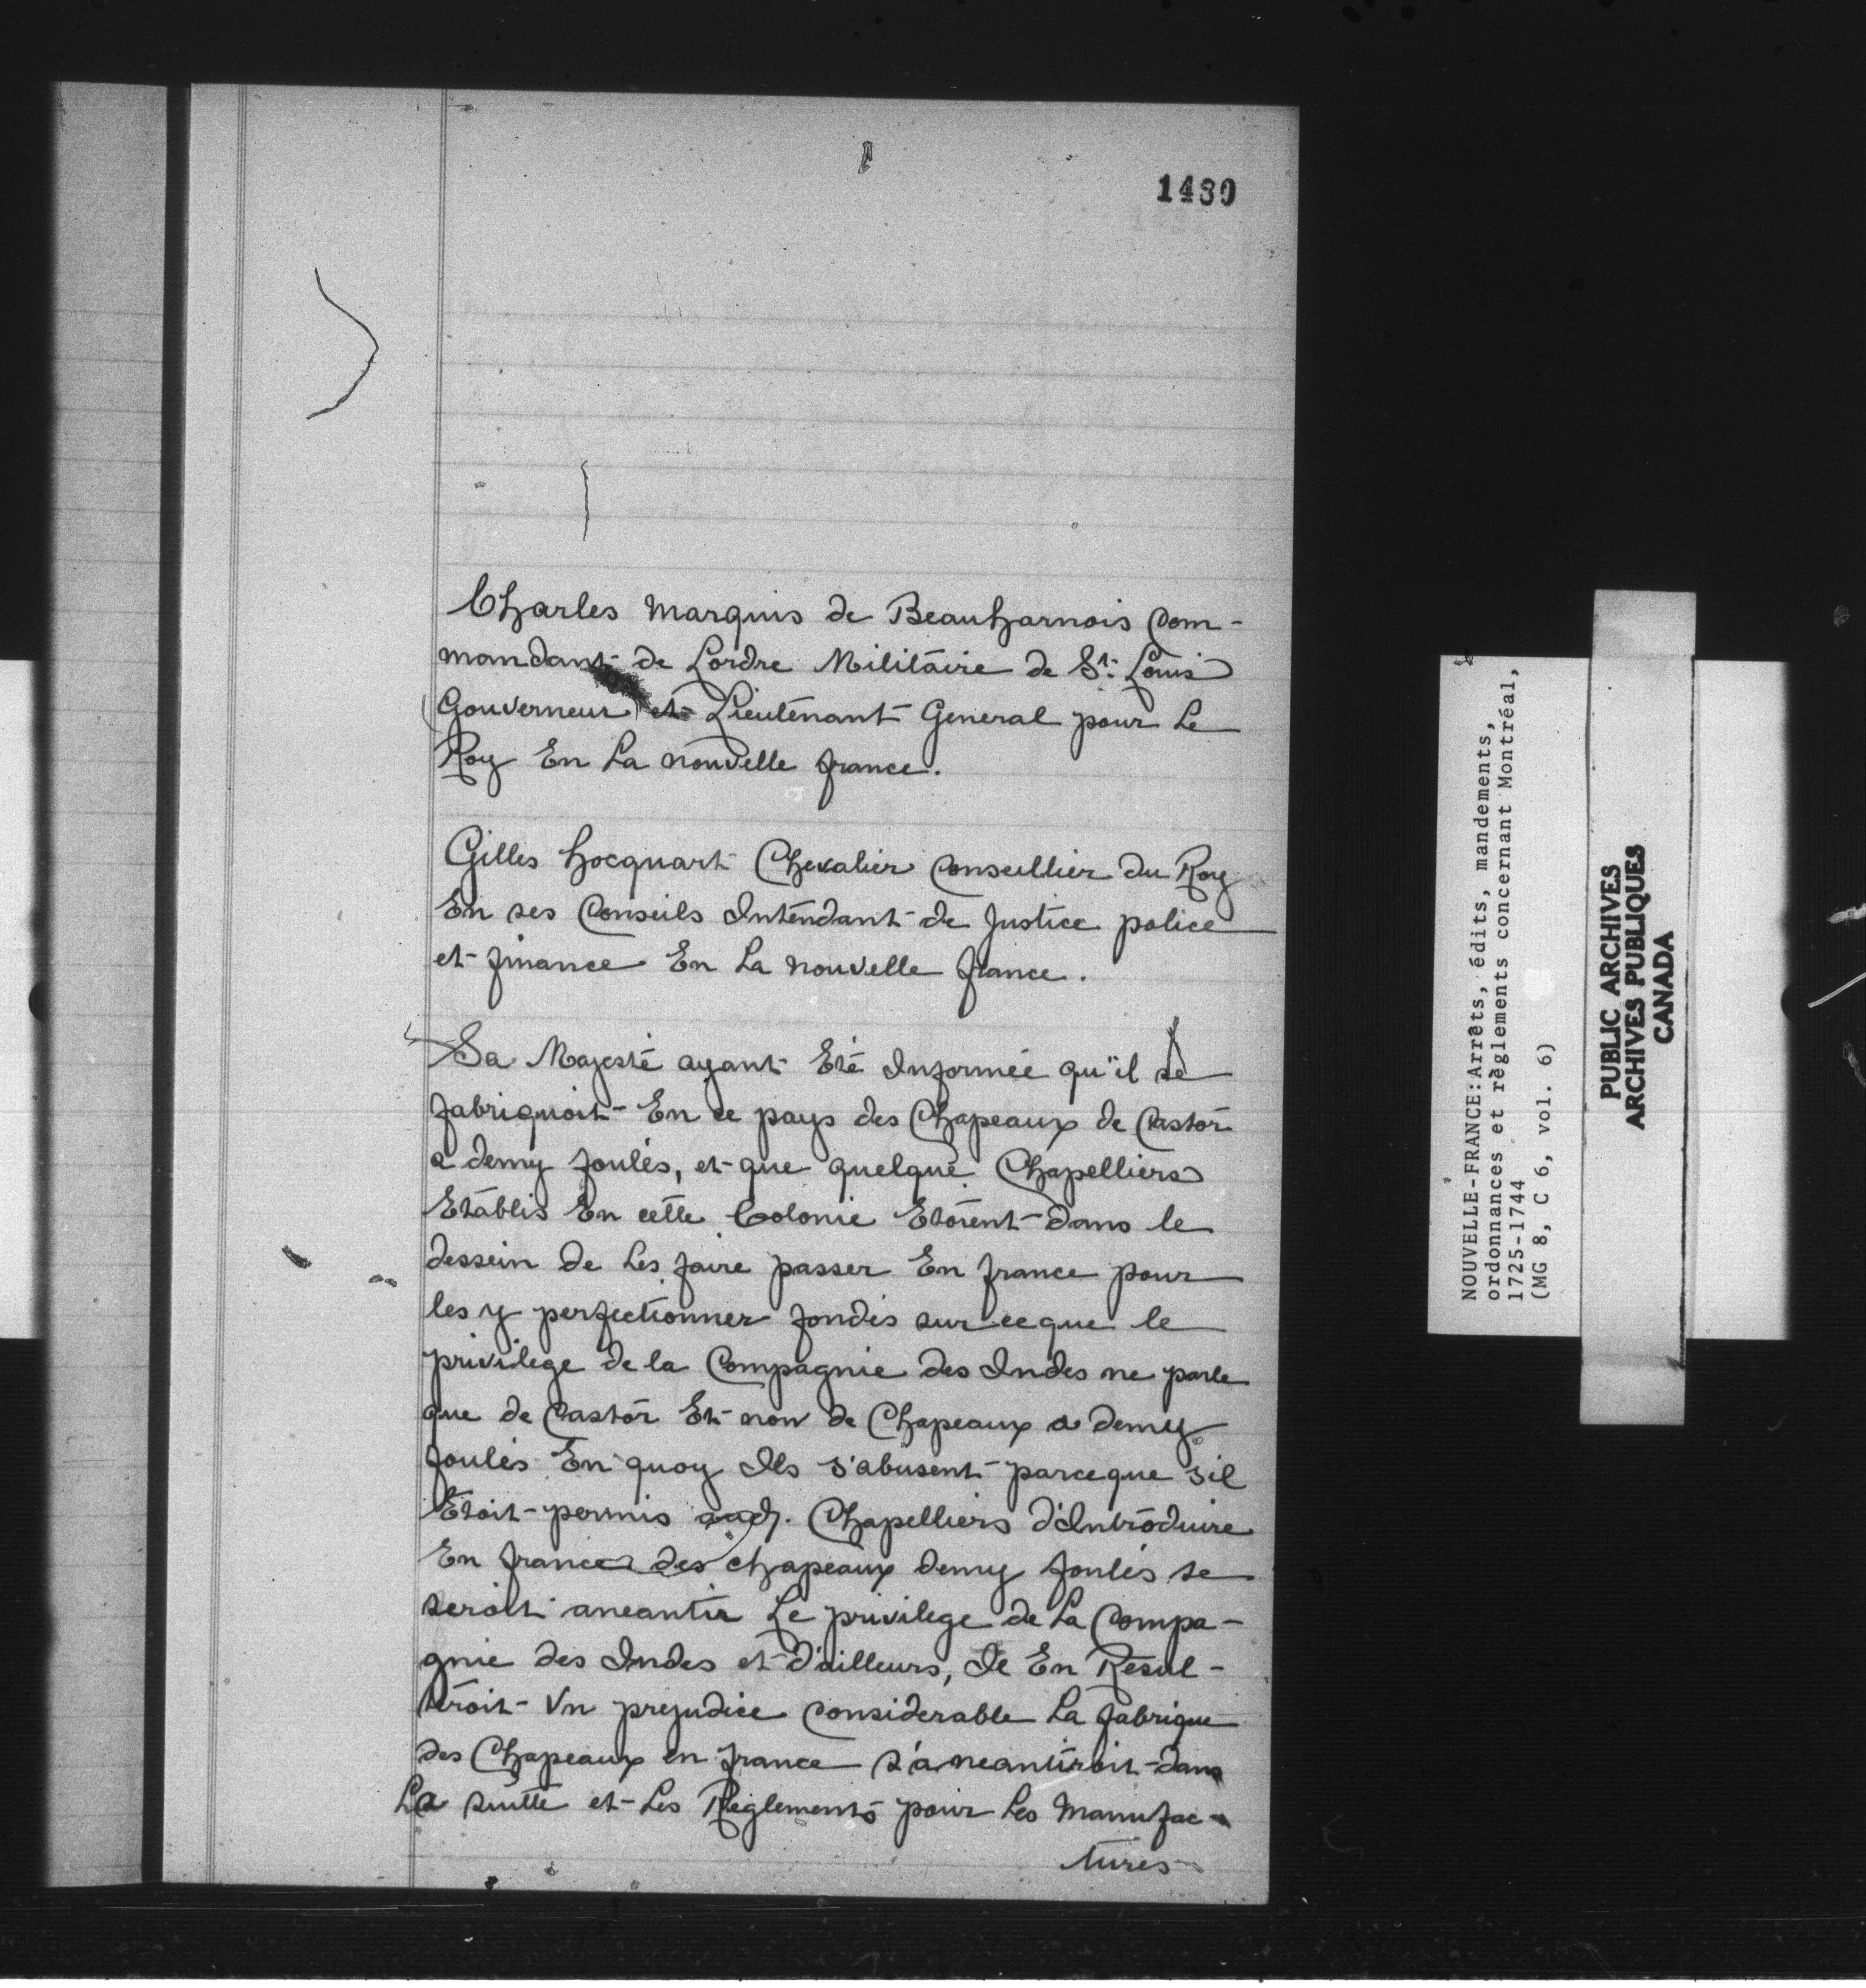 1430
Charles Marquis de Beauharnois Com-
mandant de Lordre Militaire de St. Louis
Gouverneur et Lieutenant General pour Le
Roy En La nouvelle france.
Gilles hocquart Chevalier Conseillier du Roy
En ses Conseils Intendant de Justice police
et finance En La nouvelle france.
Sa Majesté ayant Eté Informée qu'il se
fabriquoit En ce pays des Chapeaux de Castor
a demy foulés, et que quelque Chapelliers
Etablis En cette Colonie Etoient dans le
dessein de Les faire passer En france pour
les y perfectionner fondés sur ce que le
privilege de la Compagnie des Indes ne parle
que de Castor Et non de Chapeaux a demy
foulés En quoy Ils s'abusent parceque sil
Etoit permis auxd. Chapelliers d'Introduire
En france des chapeaux demy foulés se
seroit aneantir Le privilege de La Compa-
gnie des Indes et d'ailleurs, Il En Resul-
teroit Vn prejudice Considerable La fabrique
des Chapeaux en france s'aneantiroit dans
La suitte et Les Reglements pour Les Manufac-
tures
NOUVELLE-FRANCE:Arrêts, édits, mandements,
ordonnances et règlements concernant Montréal,
1725-1744
(MG 8, C 6, vol. 6)
PUBLIC ARCHIVES
ARCHIVES PUBLIQUES
CANADA